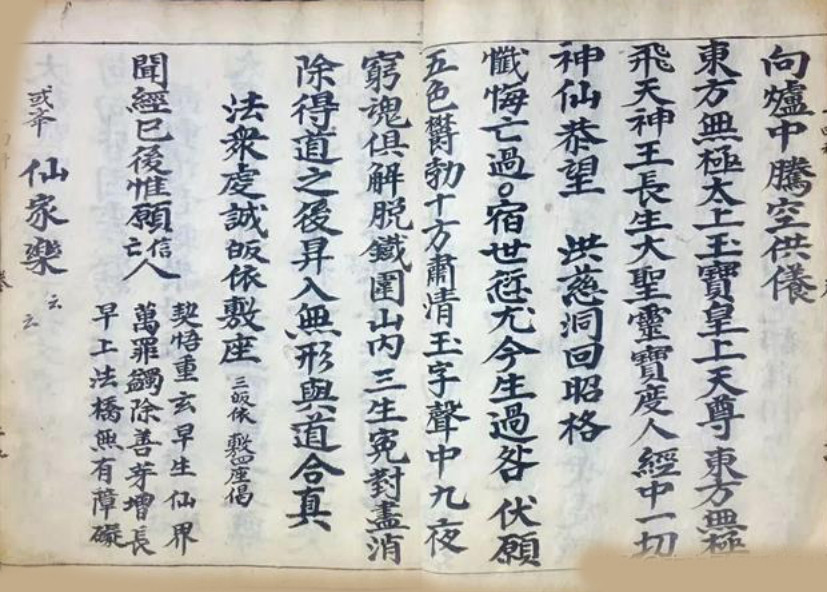 向爐中騰空供儀
東方無極太上玉寶皇上天尊 東方無極
飛天神王長生大聖靈寶度人經中一切
神仙恭望 洪慈洞回昭格
懺悔亡過○宿世愆尤今生過咎 伏願
五色欝勃十方肅清玉字聲中九夜
窮魂俱解脫鐵圍山內三生冤對盡消
除得道之後昇入無形與道合真
法衆虔誠皈依敷座 三皈依 敷座偈
聞經已後惟願信亡人
契悟重玄早生仙界
萬罪蠲除善芽增長
早上法橋無有障礙
或 仙家樂云云